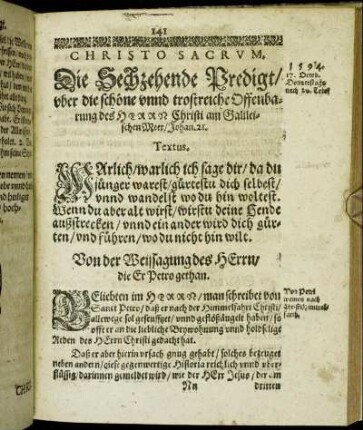 141
CHRISTO SACRVM.
Die Sechzehende Predigt/
vber die schöne vnnd trostreiche Offenba-
rung des HERRN Christi am Galilei-
schen Meer/ Johan. 21.
1594.
17. Octob.
Donnerstags
nach
Textus.
WArlich/ warlich ich sage dir/ da du
jünger warest/ gürtestu dich selbest/
vnnd wandelst wo du hin woltest.
Wenn du aber alt wirst/ wirstu deine Hende
außstrecken/ vnnd ein ander wird dich gür-
ten/ vnd führen/ wo du nicht hin wilt.
Von der Weissagung des HErrn/
die Er Petro gethan.
GEliebten im HERRN/ man schreibet von
Sanct Petro/ daß er nach der Himmelfahrt Christi/
allewege sol geseufftzet/ vnnd geklöglichet haben/ so
offt er an die liebliche Beywohnung vnnd holdselige
Reden des HErrn Christi gedacht hat.
Daß er aber hierin vrsach gnug gehabt/ solches bezeuget
neben andern/ diese gegenwertige Historia reichlich vnnd vber-
flüssig/ darinnen gemeldet wird/ wie der HErr Jesus/ der am
Nn dritten
Von Petri
weinen nach
Christi